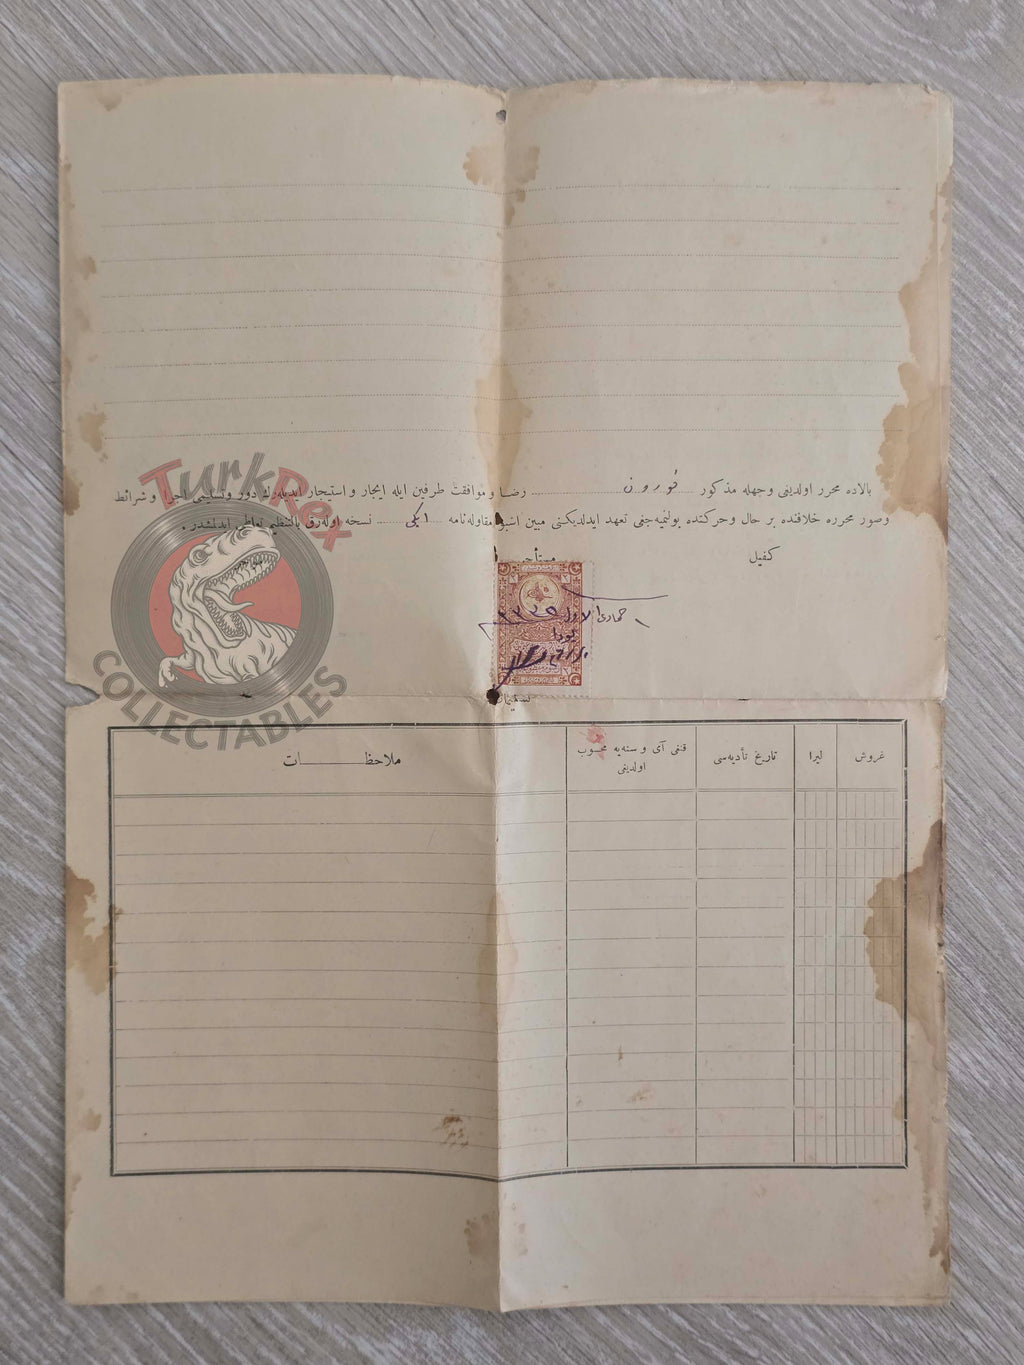 بالاده محرر اولدیغی وجهله مذکور قورون رضا و موافقت طرفین ایله ایجار و استیجار ایدیله‌رك دور و تسلیمی اجرا و شرائط
وصور محرره خلافنده بر حال وحرکتده بولنمیه‌جغی تعهد ایدلدیکنی مبین اشبو مقاوله‌نامه ایکی نسخه اوله‌رق بالتنظیم تعاطی ایدلمشدر .
کفیل مستأجر
جمادی الاول
TurkRex
COLLECTABLES
غروش لیرا تاریخ تأدیه‌سی قنغی آی و سنه‌یه محسوب اولدیغی ملاحظات